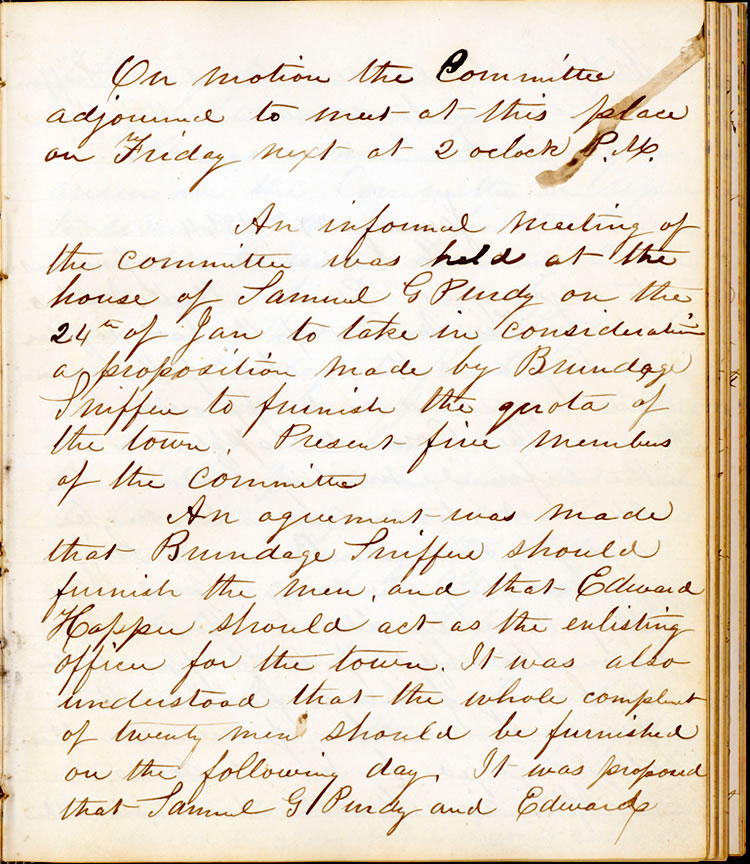 On motion the Committee
adjourned to meet at this place
on Friday next at 2 oclock P.M.
An informal meeting of
the committee was held at the
house of Samuel G Purdy on the
24th of Jan to take in consideration
a proposition made by Brundage
Sniffen to furnish the quota of
the town. Present five members
of the committee
An agreement was made
that Brundage Sniffen should
furnish the men, and that Edward
Hopper should act as the enlisting
officer for the town. It was also
understood that the whole complement
of twenty men should be furnished
on the following day. It was proposed
that Samuel G Purdy and Edward